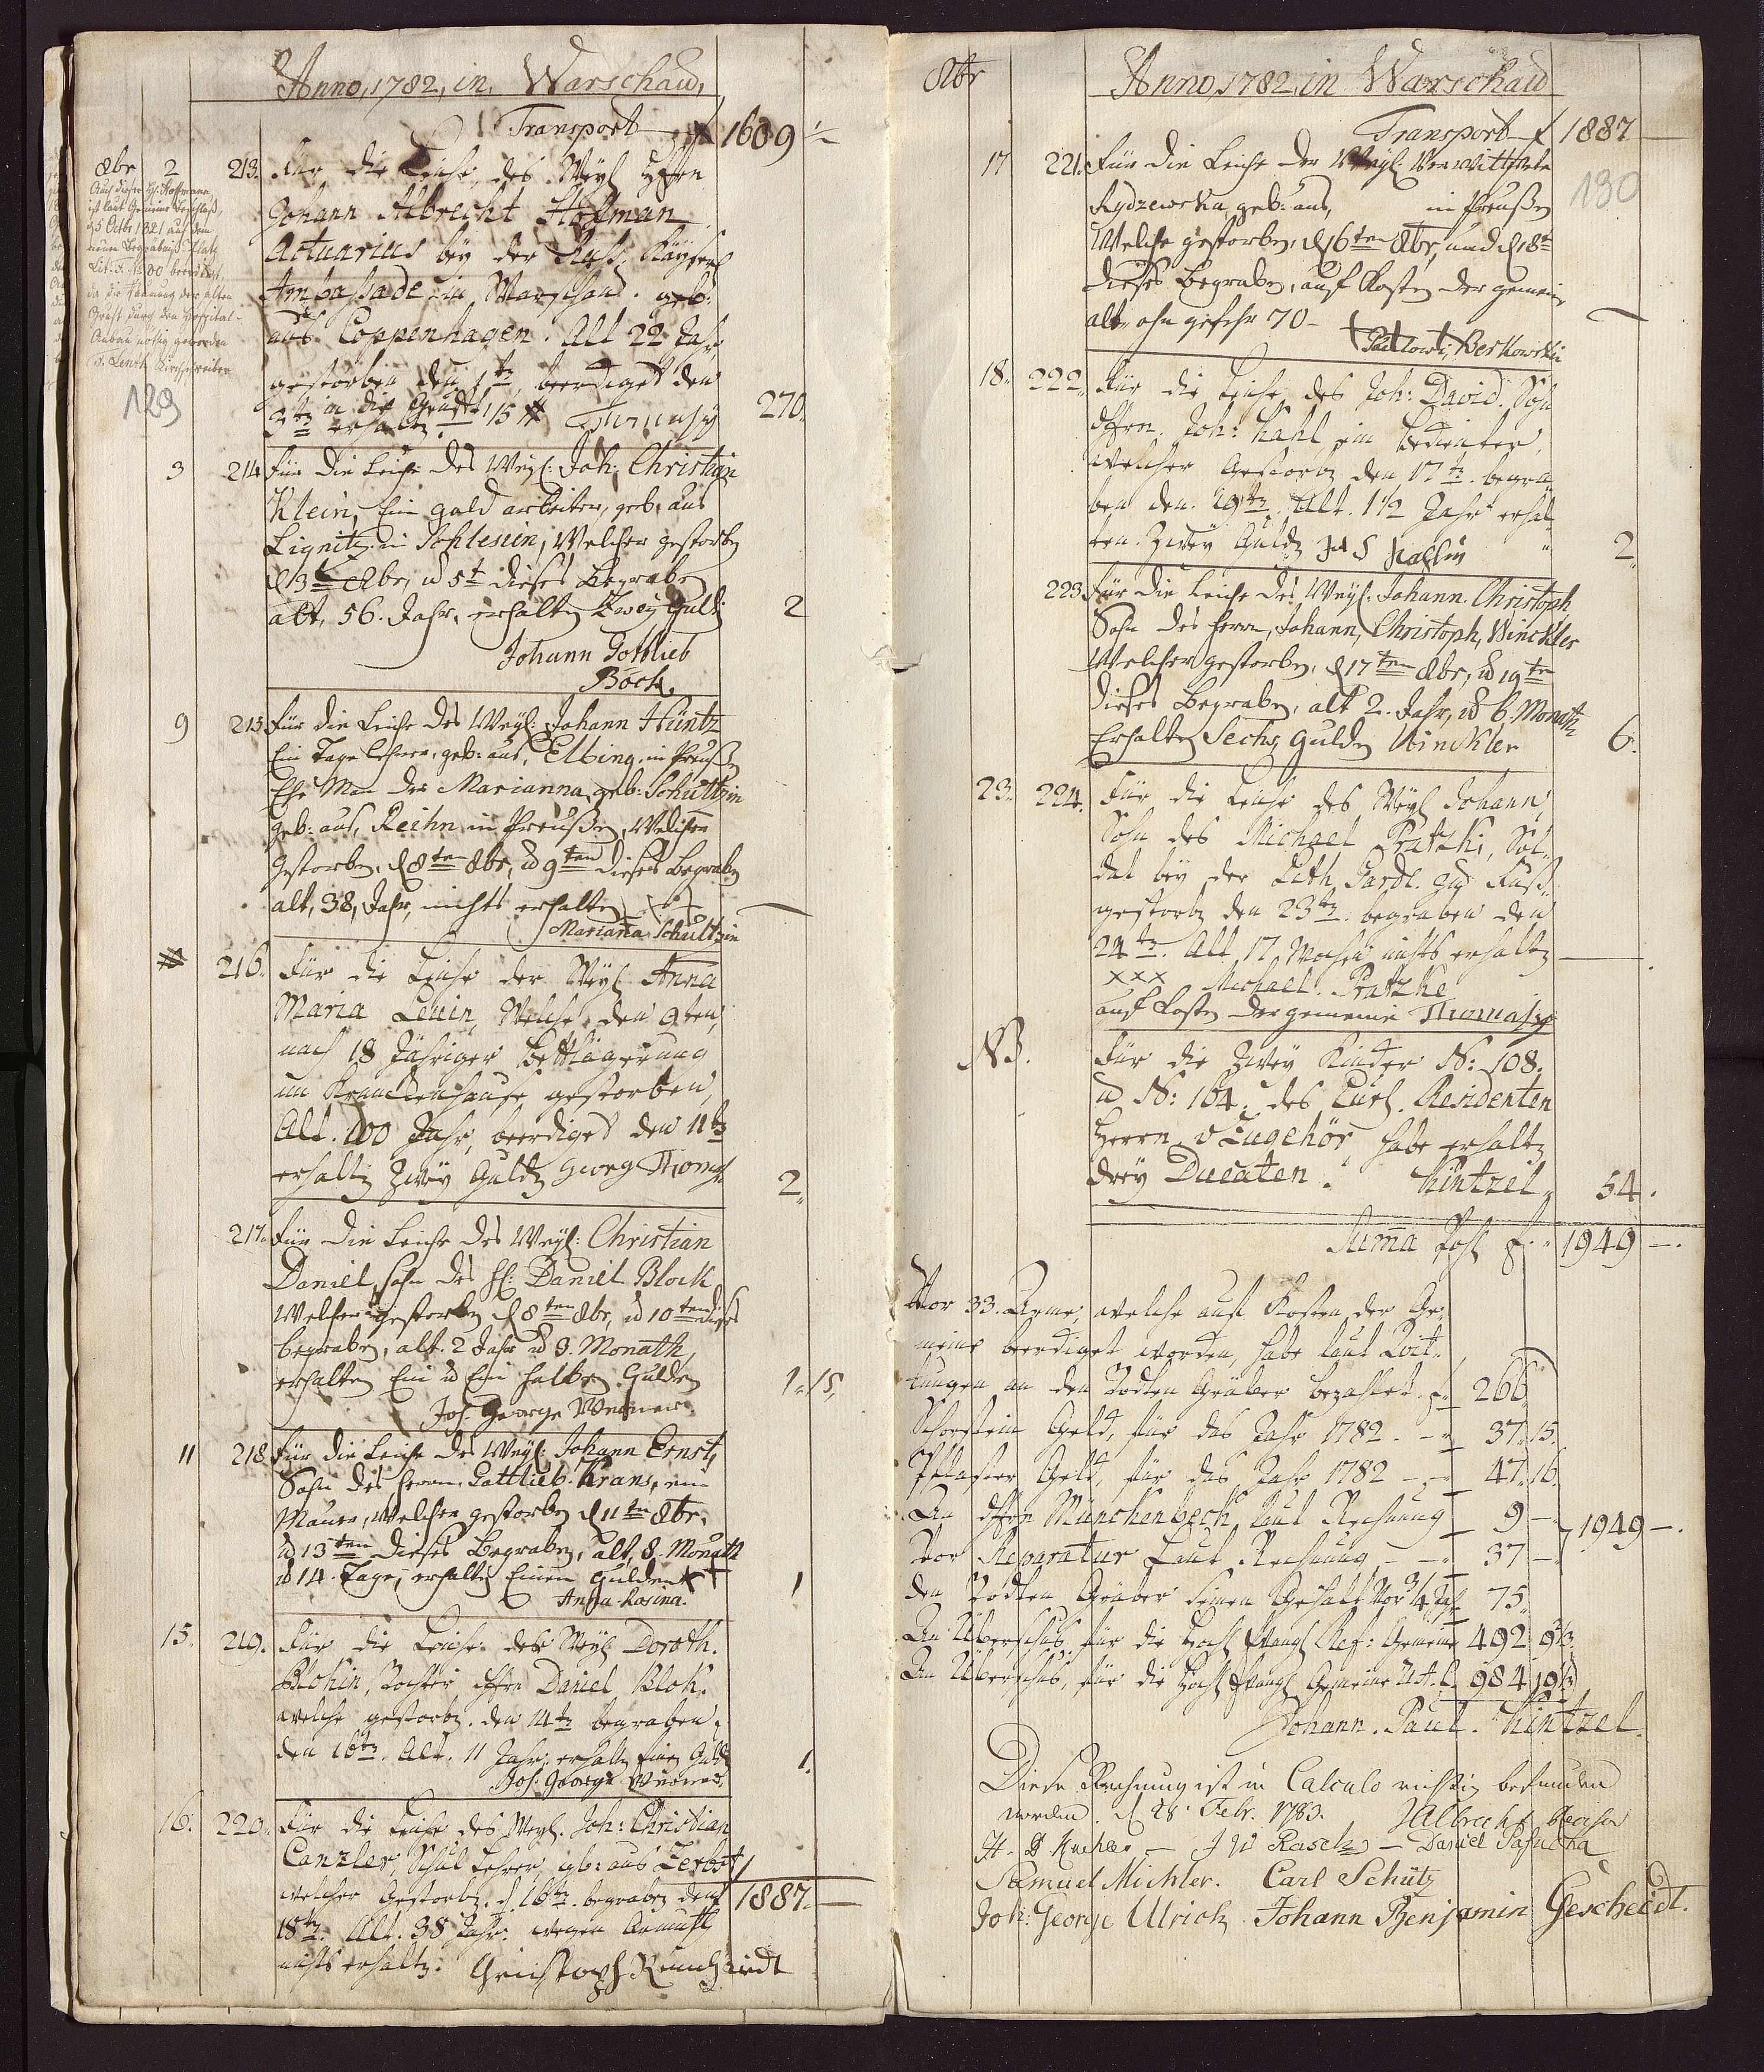 Anno, 1782, in, Warschau,
Transport f 1609 -
8br 2 213. Für die Leiche, des Weyl. Herrn
Auch dieser H. Hoffmann
ist laut Gemeine Beschluß,
d 5 Octbr 1821 auf dem
neuen Begräbniß Platz
Lit. F. No 30 beerdiget,
da die Räumung der alten
Gruft durch den Hospital-
Anbau nöthig geworden
Lenck Kirchschreiber
Johann Albrecht Hoffman
Actuarius bey der Ruß. Kayserl
Ambassade in Warschau. geb:
aus Coppenhagen. Alt 22 Jahr
gestorben den 1ten, beerdiget den
3ten in die Grufft erhalten 15 # 270.
129
3 214 Für die Leiche des Weyl: Joh: Christian
Klein, Ein gold arbeiter, geb: aus
Lignitz in Schlesien, Welcher gestorben
d 3t 8br, ud 5t dieses Begraben
alt, 56. Jahr, erhalten Zwey Guld 2
Johann Gottlieb
Böck.
9 215 Für die Leiche des Weyl: Johann Hüntz
Ein Tage Lehner, geb: aus, Elbing, in Preußen
Ehe Man der Marianna, geb: Schultzin
geb: aus, Reihn in Preußen, Welcher
gestorben, d 8ten 8br, ud 9ten dieses Begraben
alt, 38, Jahr, nichts erhalten +++ —
Mariana Schultzin
216. Für die Leiche der Weyl Anna
Maria Leuin, Welche den 9ten,
nach 18 Jähriger Bettlägerung
im Kranckenhause gestorben,
Alt. 100 Jahr, beerdiget den 11t
erhalten Zwey Guld Georg Thomas 2.
217. Für die Leiche des Weyl: Christian
Daniel, Sohn des H: Daniel Block
Welcher gestorben d 8ten 8br, ud 10ten dieses
begraben, alt. 2 Jahr ud 9. Monath,
erhalten Ein ud Ein halben Gulden 1. 15.
Joh. George Werner
11 218 Für die Leiche des Weyl: Johann Ernst,
Sohn des Herrn Gottlieb Krans, ein
Maurer, Welcher gestorben d 11ten 8br.
ud 13ten dieses Begraben, alt, 8. Monath
ud 14. Tage, erhalten Einen Gulden 1
Anna Rosina.
15. 219. Für die Leiche der Weyl Doroth.
Blohin, Tochter Herrn Daniel Bloh.
welche gestorb. den 14t begraben,
den 16t. Alt. 11 Jahr. erhalt einen Guld 1.
Joh. George Werner
16. 220. Für die Leiche des Weyl. Joh: Christian
Canzler, Schul Lehrer, geb: aus Zerbst
welcher Gestorb. d. 16t. begraben den 1887. —
18t. Alt. 38 Jahr. wegen Armuth
nichts erhalt. Christoph
8br Anno, 1782, in Warschau
Transport f 1887 —
130
17 221. Für die Leiche der Weyl: Verwittwete
Rydzewska, geb: aus, in Preußen
Welche gestorben, d 16ten 8br, und d 18t
dieses Begraben, auf Kosten der gemeine
alt, ohn gefehr 70 – —
Berkowski
18. 222. Für die Leiche des Joh: David. Sohn
Herrn. Joh: Kahl ein Bedienter,
welcher Gestorb den 17t. begra-
ben den 19t. Alt. 1 1/2 Jahr erhal-
ten Zwey Guld 2.
223. Für die Leiche des Weyl: Johann Christoph
Sohn des Herrn, Johann, Christoph, Winckler
Welcher gestorben, d 17ten 8br, ud 19ten
dieses Begraben, alt 2. Jahr, ud 6. Monath
Erhalten Sechs, Gulden Winckler 6.
23. 224. Für die Leiche des Weyl Johann
Sohn des Michael Pratzki, Sol-
dat bey der Lith. Garde zu Fuß.
gestorb den 23t. begraben den
24t. Alt 17 Wochen nichts erhalt —
xxx Michael Pratzke
auf Kosten der gemeine Thomas
NB. Für die Zwey Kinder N: 108.
ud N: 164. des Curl. Residenten
Herrn v Zugehör, habe erhalten
drey Ducaten. Kintzel 54.
Suma Pohl f. 1949 —.
Vor 33. Arme, welche auf Kosten der Ge-
meine beerdiget worden, habe laut Quit-
tungen an den Todten Gräber bezahlet 266
Schorstein Geld, für das Jahr 1782. — 37. 15.
Pflaster Geld, für das Jahr 1782 — 47. 16.
An Herrn Münchenbeck laut Rechnung — 9 —
Vor Reparatur Laut Rechnung — 37 — 1949 —.
den Todten Gräber seinen Gehalt vor 3/4 Jahr 75.
An Überschus für die Hoch Evangl Ref: Gemeine 492 9 1/3.
An Überschus, für die Hoch Evangl Gemeine U. A. C. 984 19 1/3
Johann. Paul. Kintzel.
Diese Rechnung ist in Calculo richtig befunden
worden. d 28. Febr. 1783. J Albrecht
Daniel
Samuel Michler. Carl Schütz
Joh: George Ulrich Johann Benjamin Gescheidt.